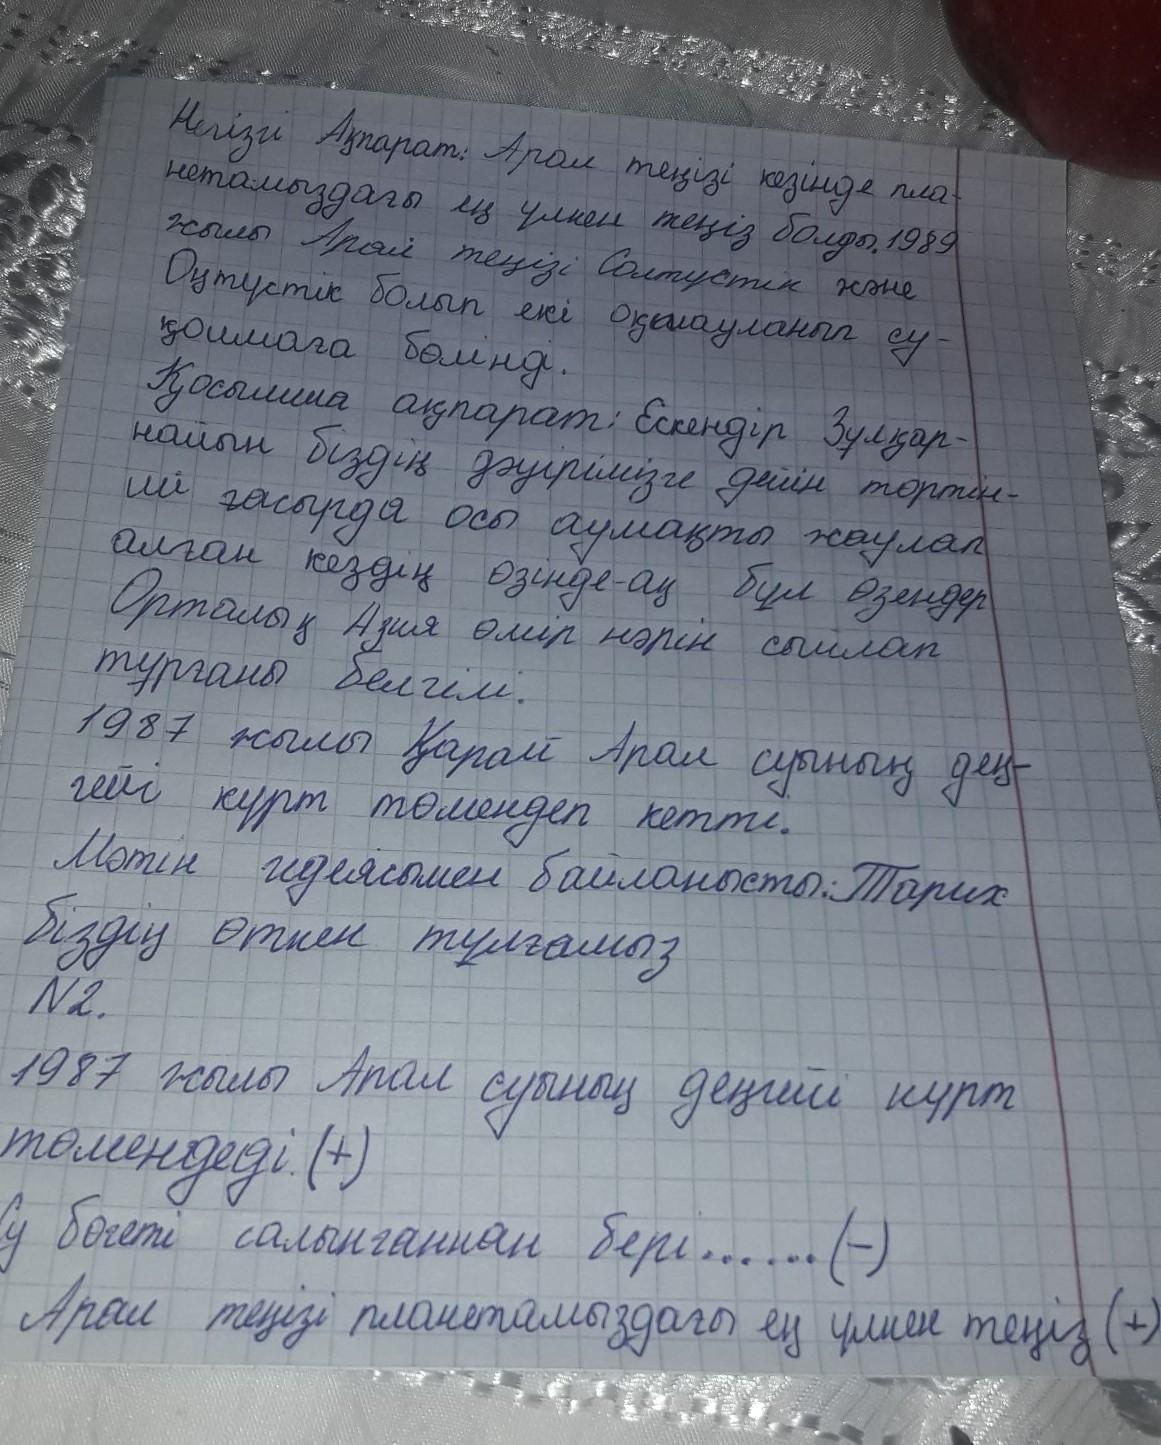 Негізгі Ақпарат: Арал теңізі кезінде пла-
нетамыздағы ең үлкен теңіз болды. 1989
жылы Арал теңізі Солтүстік және
Оңтүстік болып екі оқшауланып су-
қоймаға бөлінді.
Қосымша ақпарат: Ескендір Зұлқар-
найын біздің дәуірімізге дейін төртін-
ші ғасырда осы аумақты жаулап
алған кездің өзінде-ақ бұл өзендер
Орталық Азия өмір нәрін сыйлап
тұрғаны белгілі.
1987 жылы Қарай Арал суының дең-
гейі күрт төмендеп кетті.
Мәтін идеясымен байланысты: Тарих
біздің өткен тұлғамыз
N2.
1987 жылы Арал суының деңгейі күрт
төмендеді. (+)
Су бөгеті салынғаннан бері.......(-)
Арал теңізі планетамыздағы ең үлкен теңіз (+)